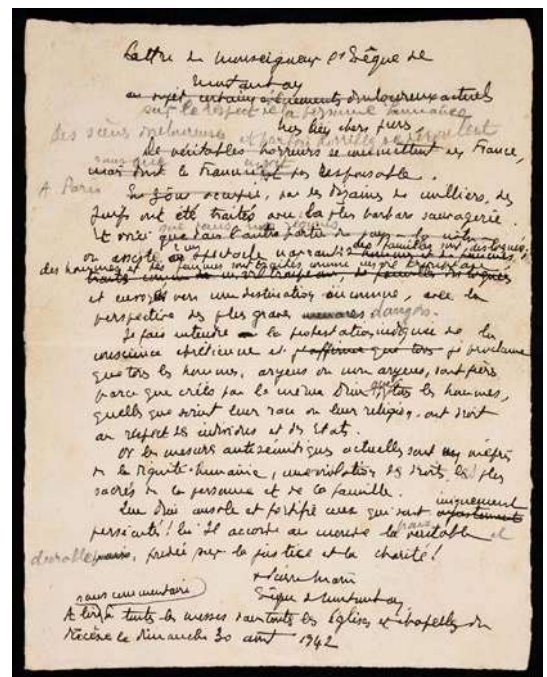 Lettre de Monseigneur l'Evêque de
Montauban
au sujet certains événements douloureux actuels
sur le respect de la personne humaine
Mes bien chers frères
Des scènes douloureuses et parfois horribles se déroulent
De véritables horreurs se commettent en France,
sans que soit
mais dont la France n'est pas responsable.
A Paris
En zône occupée, par des dizaines de milliers, des
juifs ont été traités avec la plus barbare sauvagerie.
Et voici que dans l'autre partie du pays - la nôtre
que dans nos régions
on assiste à un spectacle navrant: des familles sont disloquées,
des hommes et des femmes sont traités comme un vil troupeau,
et envoyés vers une destination inconnue, avec la
perspective des plus graves menaces dangers.
Je fais entendre la protestation indignée de la
conscience chrétienne et j'affirme que tous je proclame
que tous les hommes, aryens ou non aryens, sont frères
parce que créés par le même Dieu, que tous les hommes,
quelle que soient leur race ou leur religion, ont droit
au respect des individus et des Etats.
Or les mesures antisémitiques actuelles sont un mépris
de la dignité humaine, une violation des droits les plus
sacrés de la personne et de la famille.
Que Dieu console et fortifie ceux qui sont iniquement
persécutés! Qu'Il accorde au monde la paix véritable et
durable, fondée sur la justice et la charité!
+ Pierre Marie
Evêque de Montauban
sans commentaire
A lire à toutes les messes dans toutes les églises et chapelles du
diocèse le dimanche 30 août 1942